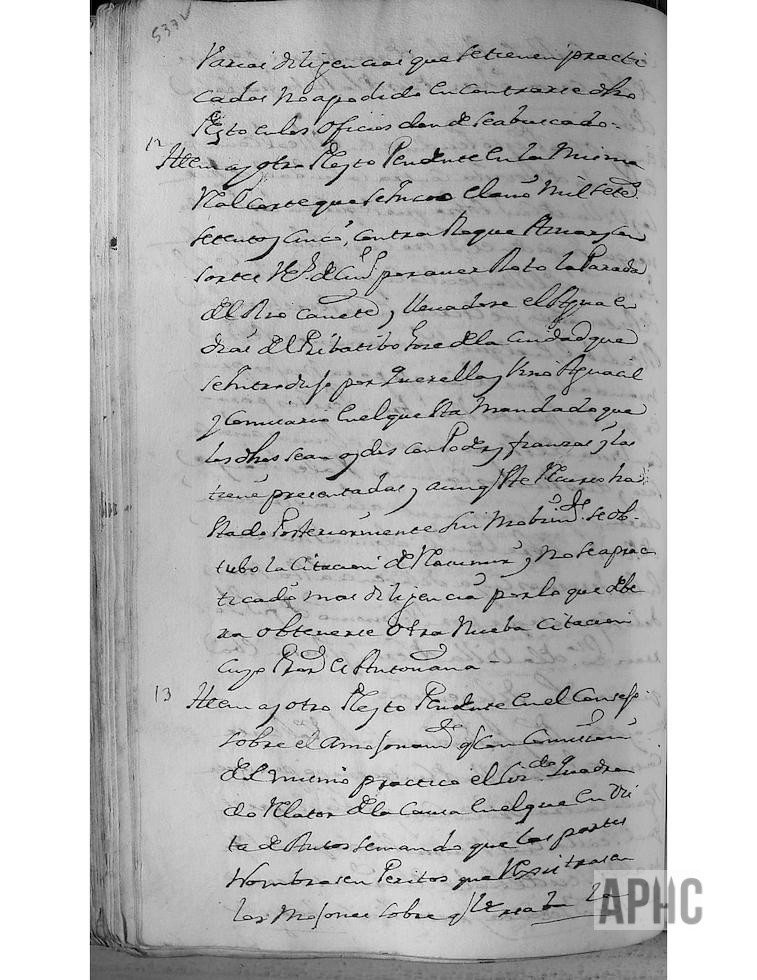 537v
Varias diligencias que se tienen practi
cadas no a podido encontrarse dho
Pleyto en los oficios donde sea buscado -
12 Item ay otro Pleyto Pendente en la Misma
Real Corte que se el año mil setes
setenta y cinco, contra Roque Amary
por aver Roto la Parada
del Rio Cañete, y llevadose el Agua en
dias del de la Ciudad que
se Introdujo por Querella y Vino Aguacil
y Comisario en el que sta Mandado que
los dhos sean oydos con Poder, y franzas y las
tiene presentadas, y aunq ste ha
stado Posteriormente sin se ob-
tubo la Citacion de y no sea prac
ticado mas diligencia por lo que debe
ra obtenerse otra Nueba Citacion
cuyo es Antoñana -
13 Item ay otro Pleyto Pendente en el Consejo
sobre el Amojonamto q con Comision
del mismo practico el Quadra
do Relator de la Causa en el que en Vis
ta de Autos se mando que las partes
Nombrasen Peritos que Registrasen
los Mojones sobre q la
APHC